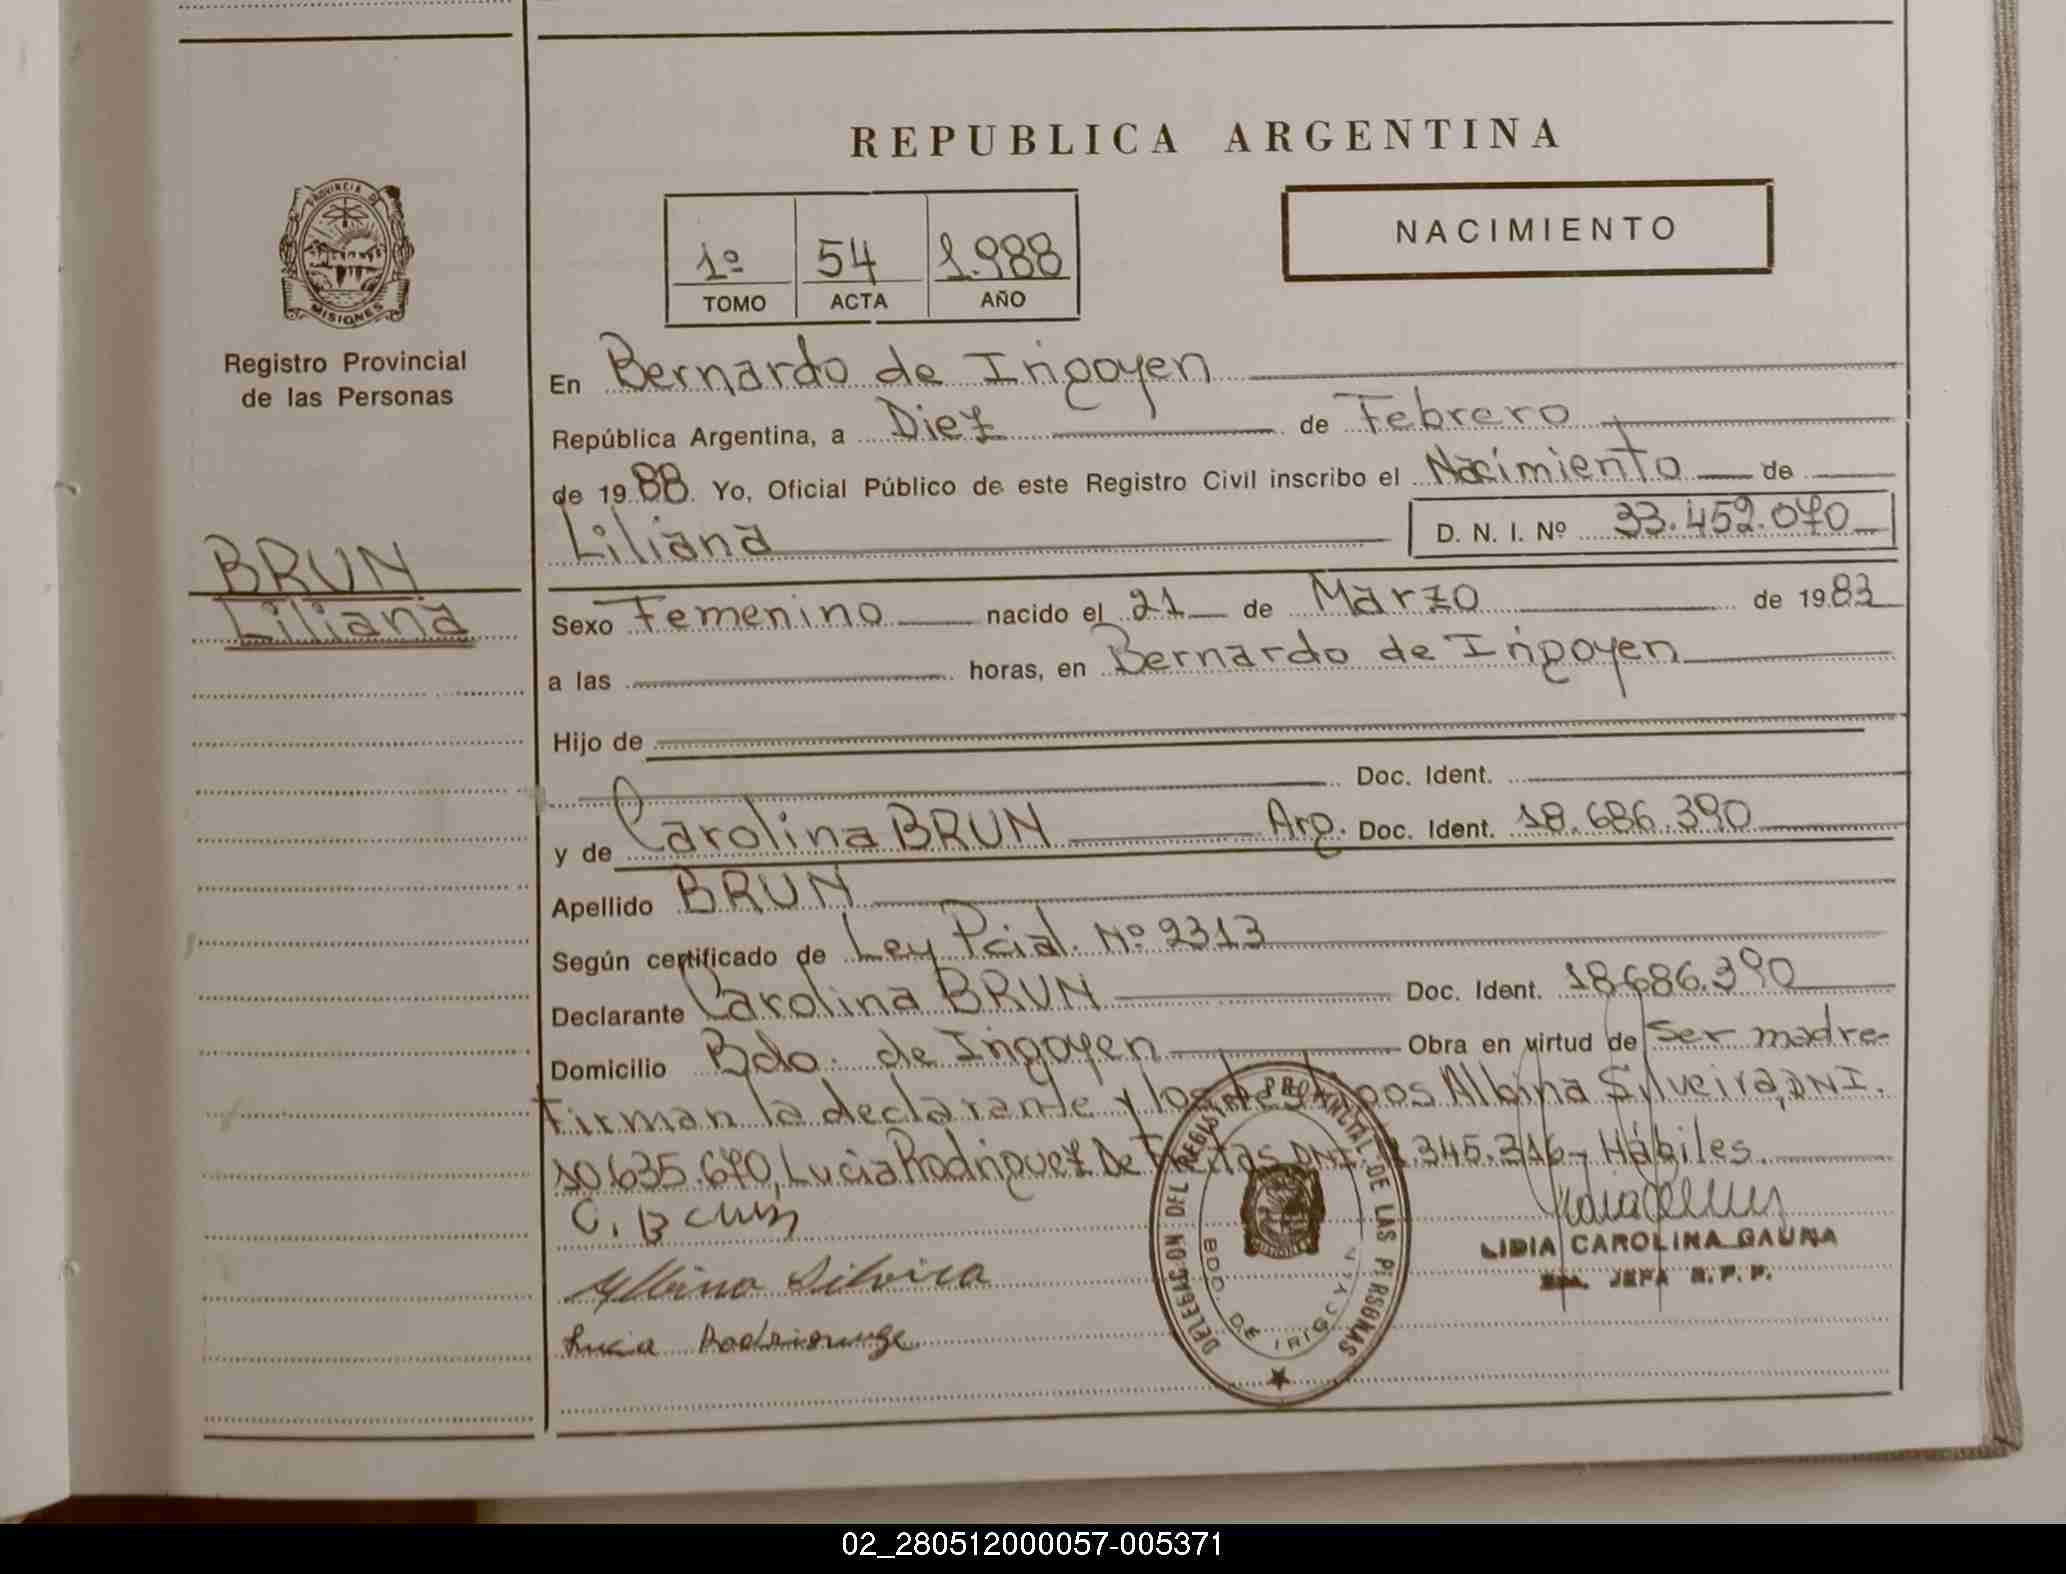 REPUBLICA ARGENTINA
PROVINCIA DE
MISIONES
Registro Provincial
de las Personas
1º 54 1.988
TOMO ACTA AÑO
NACIMIENTO
En Bernardo de Irigoyen
República Argentina, a Diez de Febrero
de 1988. Yo, Oficial Público de este Registro Civil inscribo el Nacimiento de
Liliana D. N. I. Nº 33.452.070
BRUN
Liliana
Sexo Femenino nacido el 21 de Marzo de 1983
a las horas, en Bernardo de Irigoyen
Hijo de
Doc. Ident.
y de Carolina BRUN Arg. Doc. Ident. 18.686.390
Apellido BRUN
Según certificado de Ley Pcial. Nº 2313
Declarante Carolina BRUN Doc. Ident. 18.686.390
Domicilio Bdo. de Irigoyen Obra en virtud de Ser madre-
Firman la declarante y los testigos Albina Silveira, DNI.
10.635.670, Lucia Rodriguez De Freitas DNI. .345.316- Hábiles.
C. Brun
Albina Silveira
Lucia Rodriguez
DELEGACION DEL REGISTRO PROVINCIAL DE LAS PERSONAS
BDO. DE IRIGOYEN
LIDIA CAROLINA GAUNA
JEFA R. P. P.
02_280512000057-005371